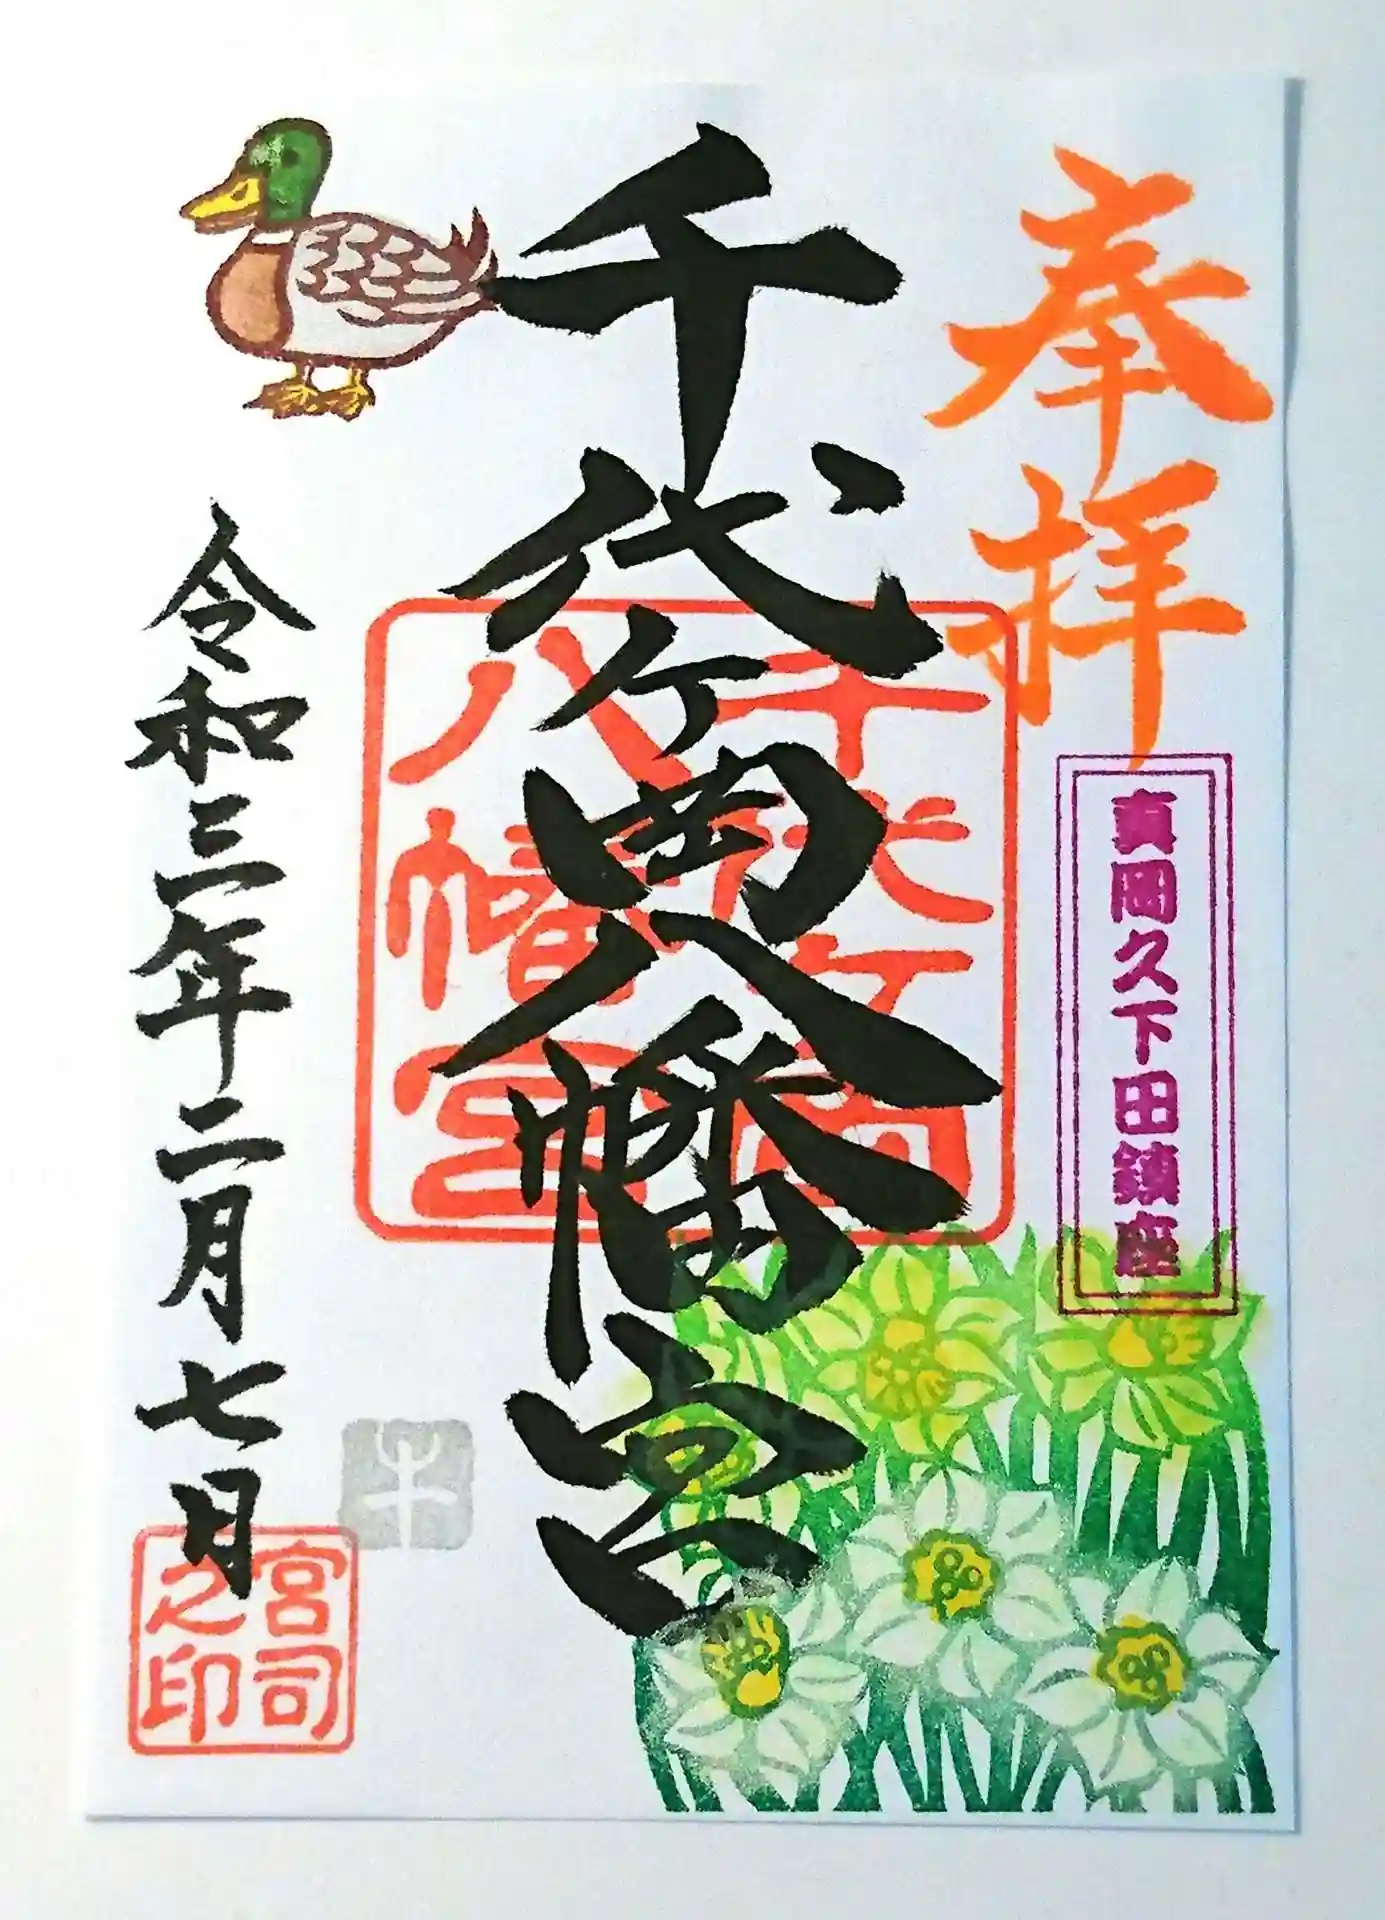 奉拝
真岡久下田鎮座
千代ヶ岡八幡宮
千代ヶ岡
八幡宮
令和三年二月七日
牛
宮司
之印